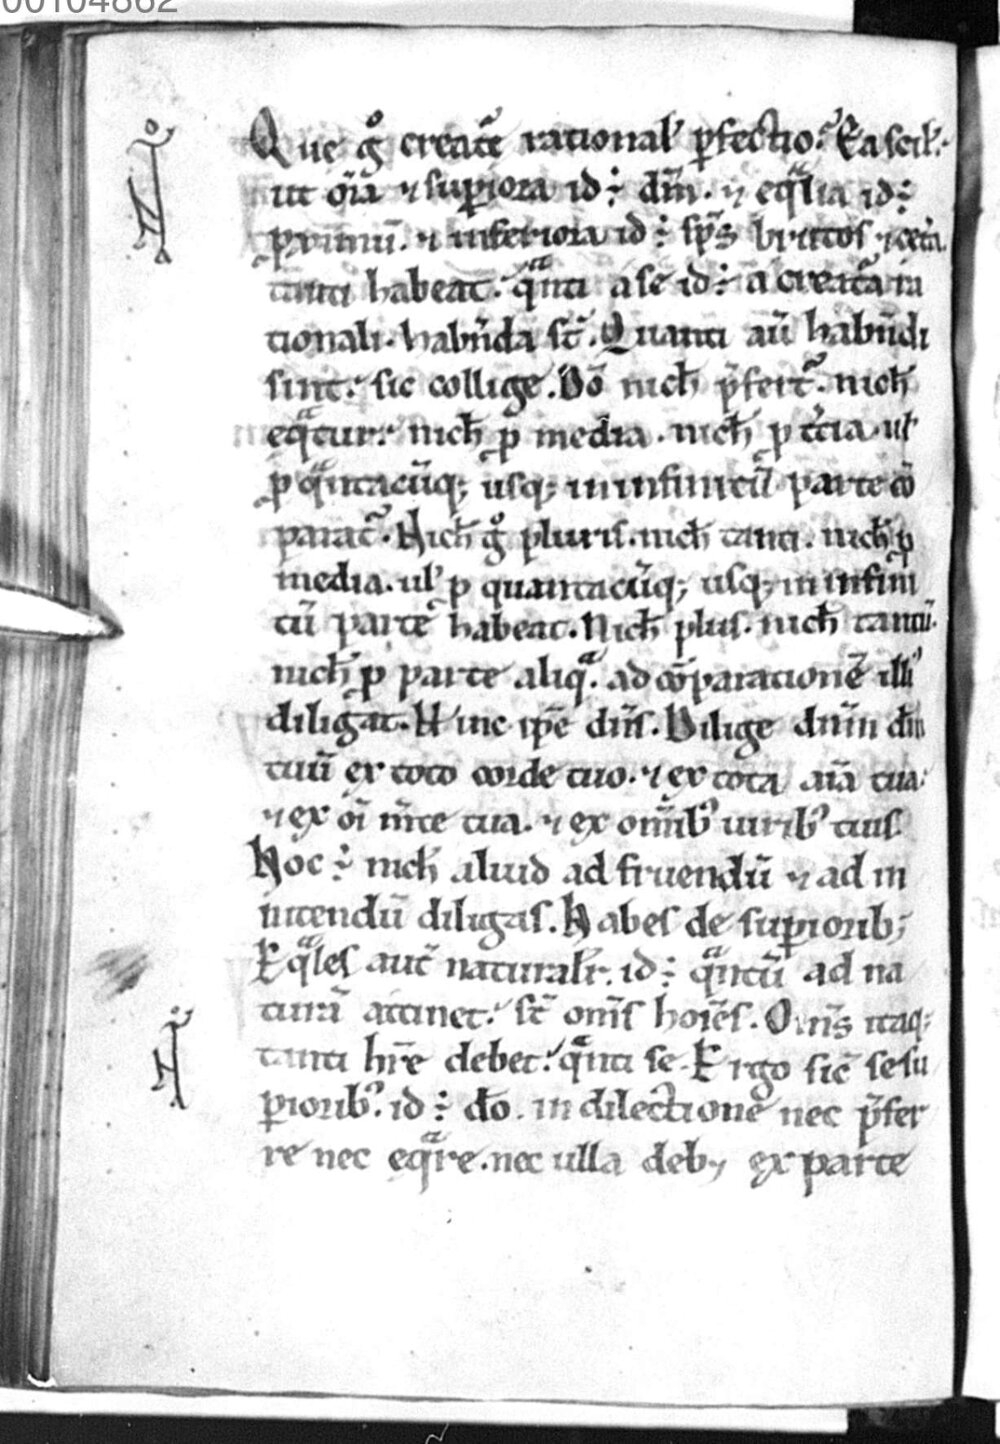 00104862
Que g̊ creat̄e rational̓ ꝑfectio. Ea scil̓.
ut om̄ia ⁊ suꝑiora id ÷ dm̄. ⁊ eqͣlia id ÷
primū. ⁊ inferiora id ÷ sp̄s brutoſ ⁊ cet̓a
tanti habeat. qͣnti a se id ÷ a creat̄a ra
tionali. habn̄da st̄. Quanti aū habn̄di
sint. sic collige. Dō nich̄ p̄fert᷑. nich̄
eqͣtur. nich̄ ꝓ media. nich̄ ꝓ t̓cia. ul̓
ꝓ qͣntacūq; usq; in infinitū parte cō
parat᷑. Nich̄ g̊ pluris. nich̄ tanti. nich̄ ꝓ
media. ul̓ ꝓ quantacūq; usq; in infini
tū parte habeat. Nich̄ plus. nich̄ tantū.
nich̄ ꝓ parte aliqͣ. ad cōparationē illi᾽
diligat. Hinc ip̄e dn̄s. Dilige dnm̄ dm̄
tuū ex toto corde tuo. ⁊ ex tota aīa tua.
⁊ ex oī m̄te tua. ⁊ ex omīb᾽ uirib᾽ tuis.
Hoc ÷ nich̄ aliud ad fruendū ⁊ ad in
nitendū diligas. Habes de suꝑiorib;
Eqͣles aut̄ naturalr̓. id ÷ qͣntū ad na
turā attinet. st̄ om̄s hoīes. Om̄s itaq;
tanti hr̄e debet. qͣnti se. Ergo sic̄ se su
ꝑiorib᾽. id ÷ do. in dilectione nec p̄fer
re nec eqͣre. nec ulla deb; ex parte